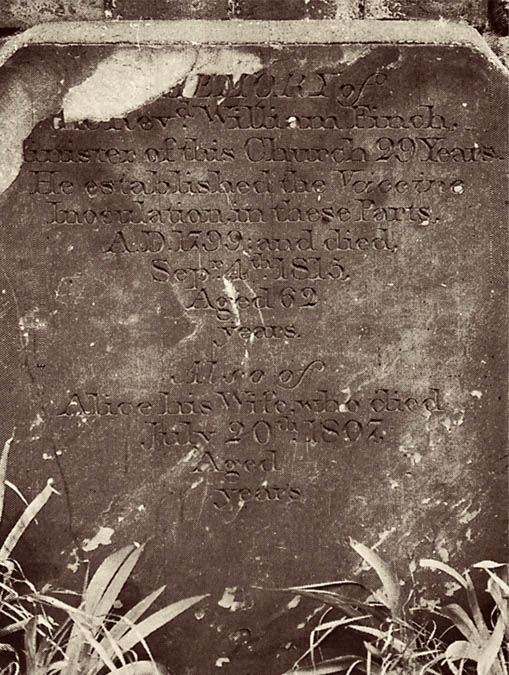 MEMORY of
the Revd. William Finch,
Minister of this Church 29 Years.
He established the Vaccine
Inoculation, in these Parts,
A.D. 1799; and died,
Sepr. 4th. 1815,
Aged 62
years.
Also of
Alice his Wife, who died
July 20th. 1807,
Aged
years